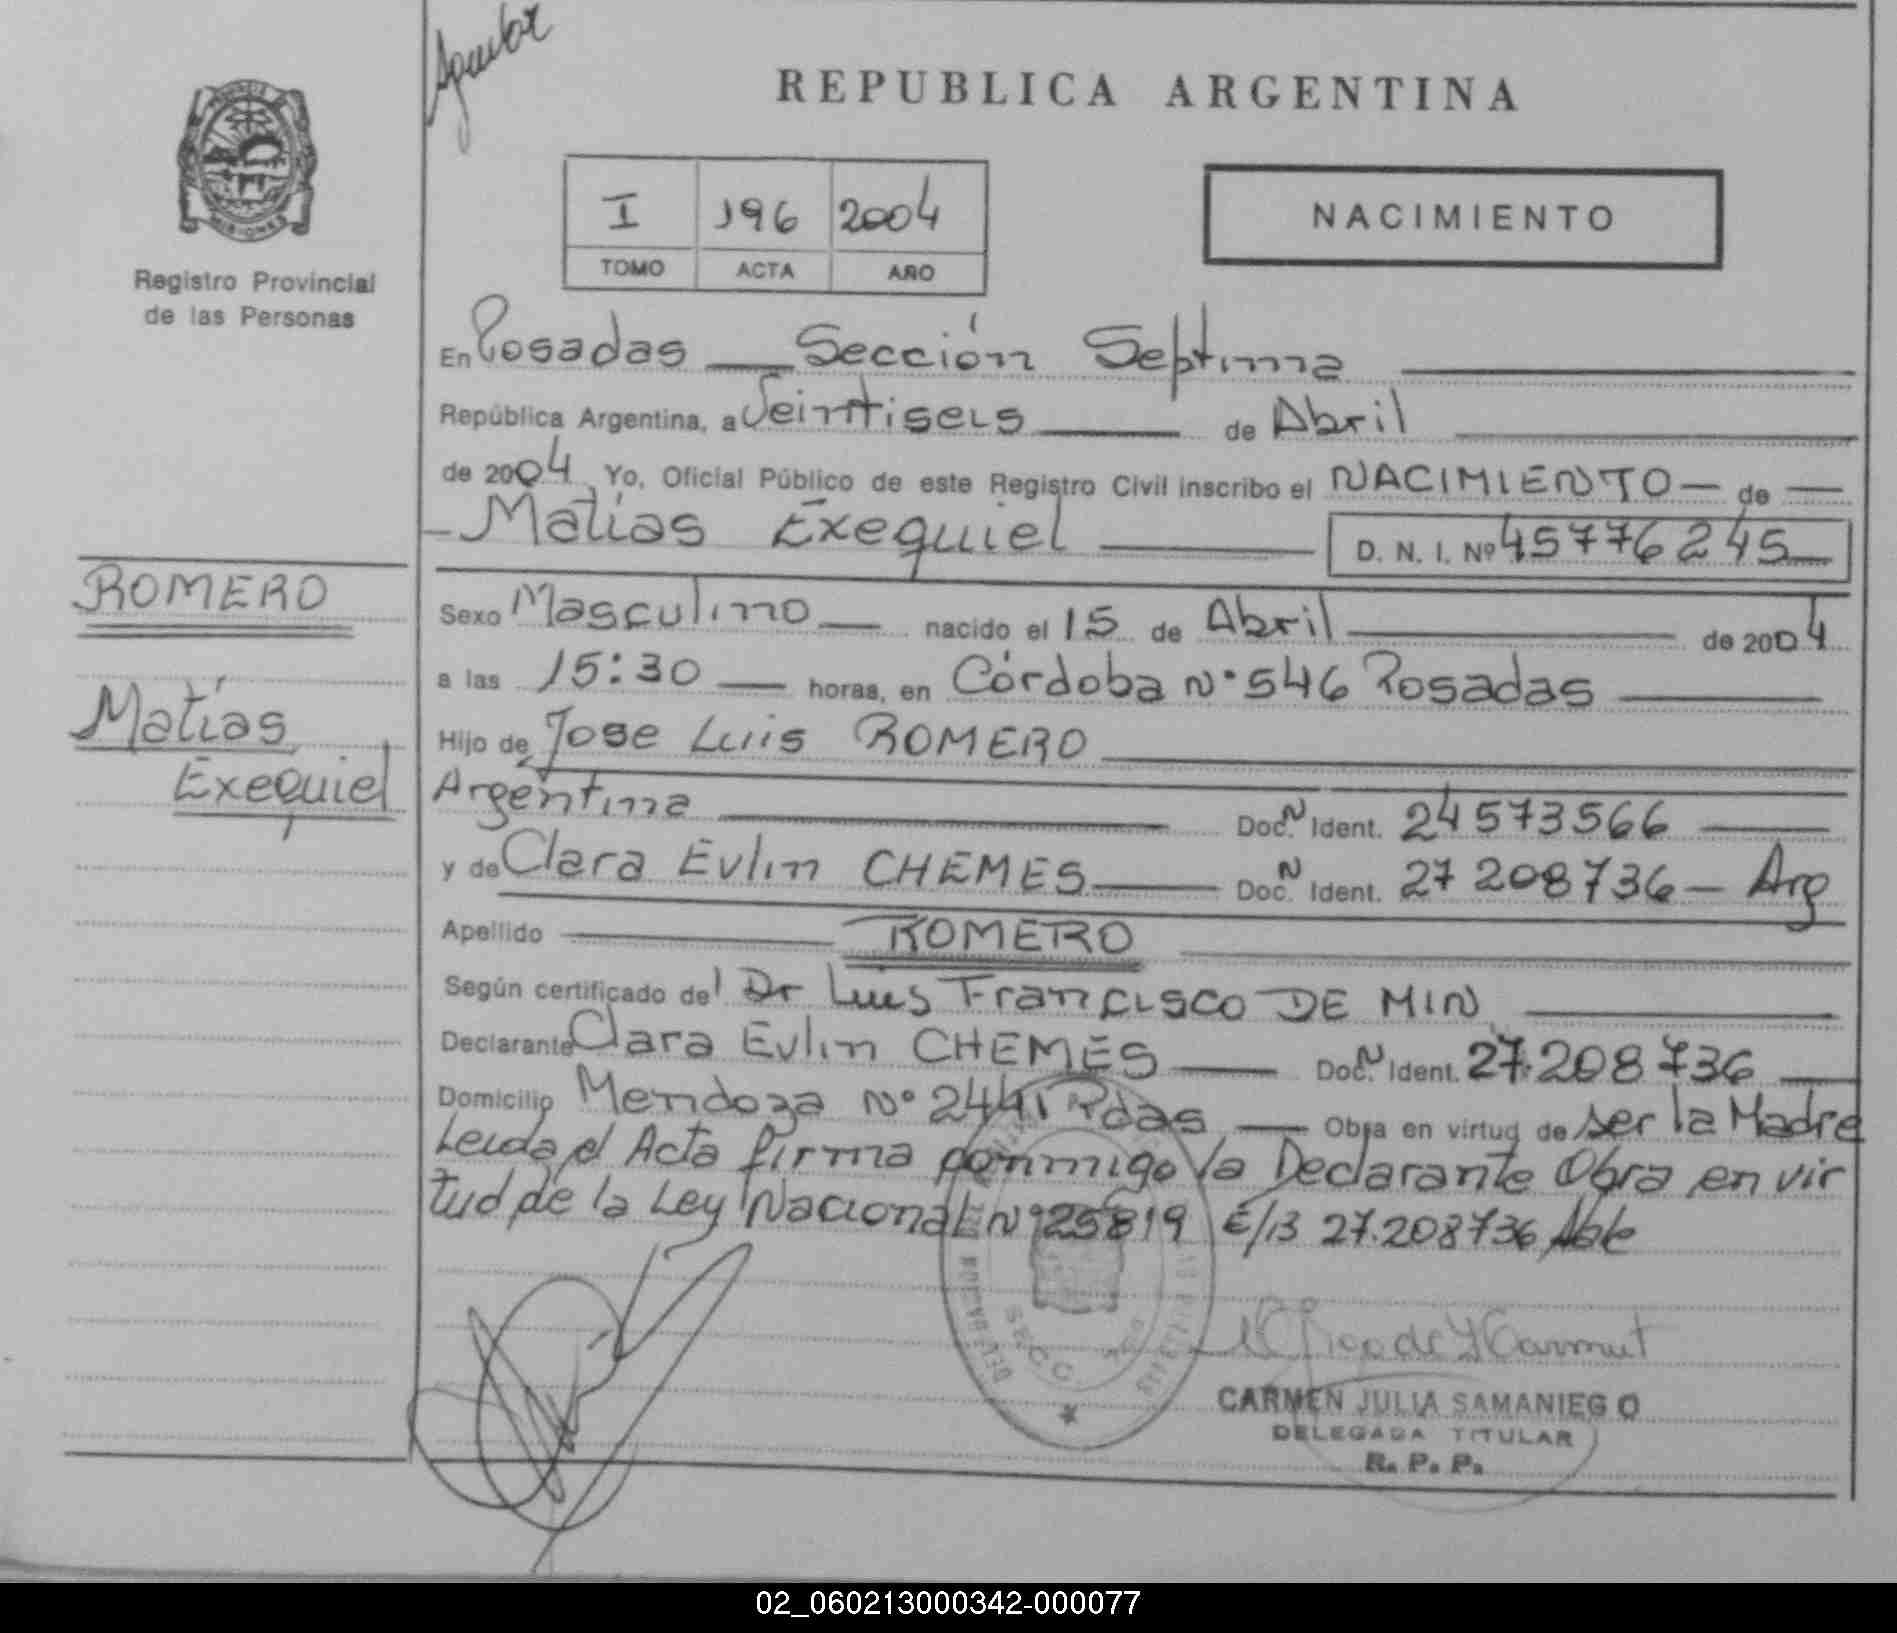 Aguilar
REPUBLICA ARGENTINA
PROVINCIA DE MISIONES
Registro Provincial
de las Personas
I 196 2004
TOMO ACTA AÑO
NACIMIENTO
En Posadas — Sección Septima
República Argentina, a Veintiseis de Abril
de 2004 Yo, Oficial Público de este Registro Civil inscribo el NACIMIENTO — de —
Matías Exequiel D. N. I. Nº 45776245
ROMERO
Matías
Exequiel
Sexo Masculino nacido el 15 de Abril de 2004
a las 15:30 horas, en Córdoba Nº 546 Posadas
Hijo de Jose Luis ROMERO
Argentina Doc. N Ident. 24573566
y de Clara Evlin CHEMES Doc. N Ident. 27208736 — Arg
Apellido ROMERO
Según certificado del Dr Luis Francisco DE MIN
Declarante Clara Evlin CHEMES Doc. N Ident. 27.208736
Domicilio Mendoza Nº 2441 Pdas — Obra en virtud de ser la Madre
Leida el Acta firma conmigo la Declarante Obra en vir
tud de la Ley Nacional Nº 25819 E/B 27.208736 Vale
SECC. 7
CARMEN JULIA SAMANIEGO
DELEGADA TITULAR
R. P. P.
02_060213000342-000077